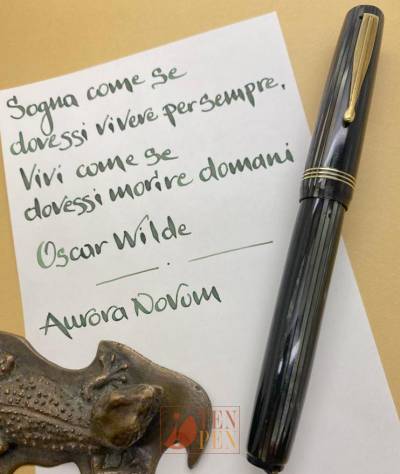 Sogna come se
dovessi vivere per sempre.
Vivi come se
dovessi morire domani
Oscar Wilde
Aurora Novum
TEN
PEN